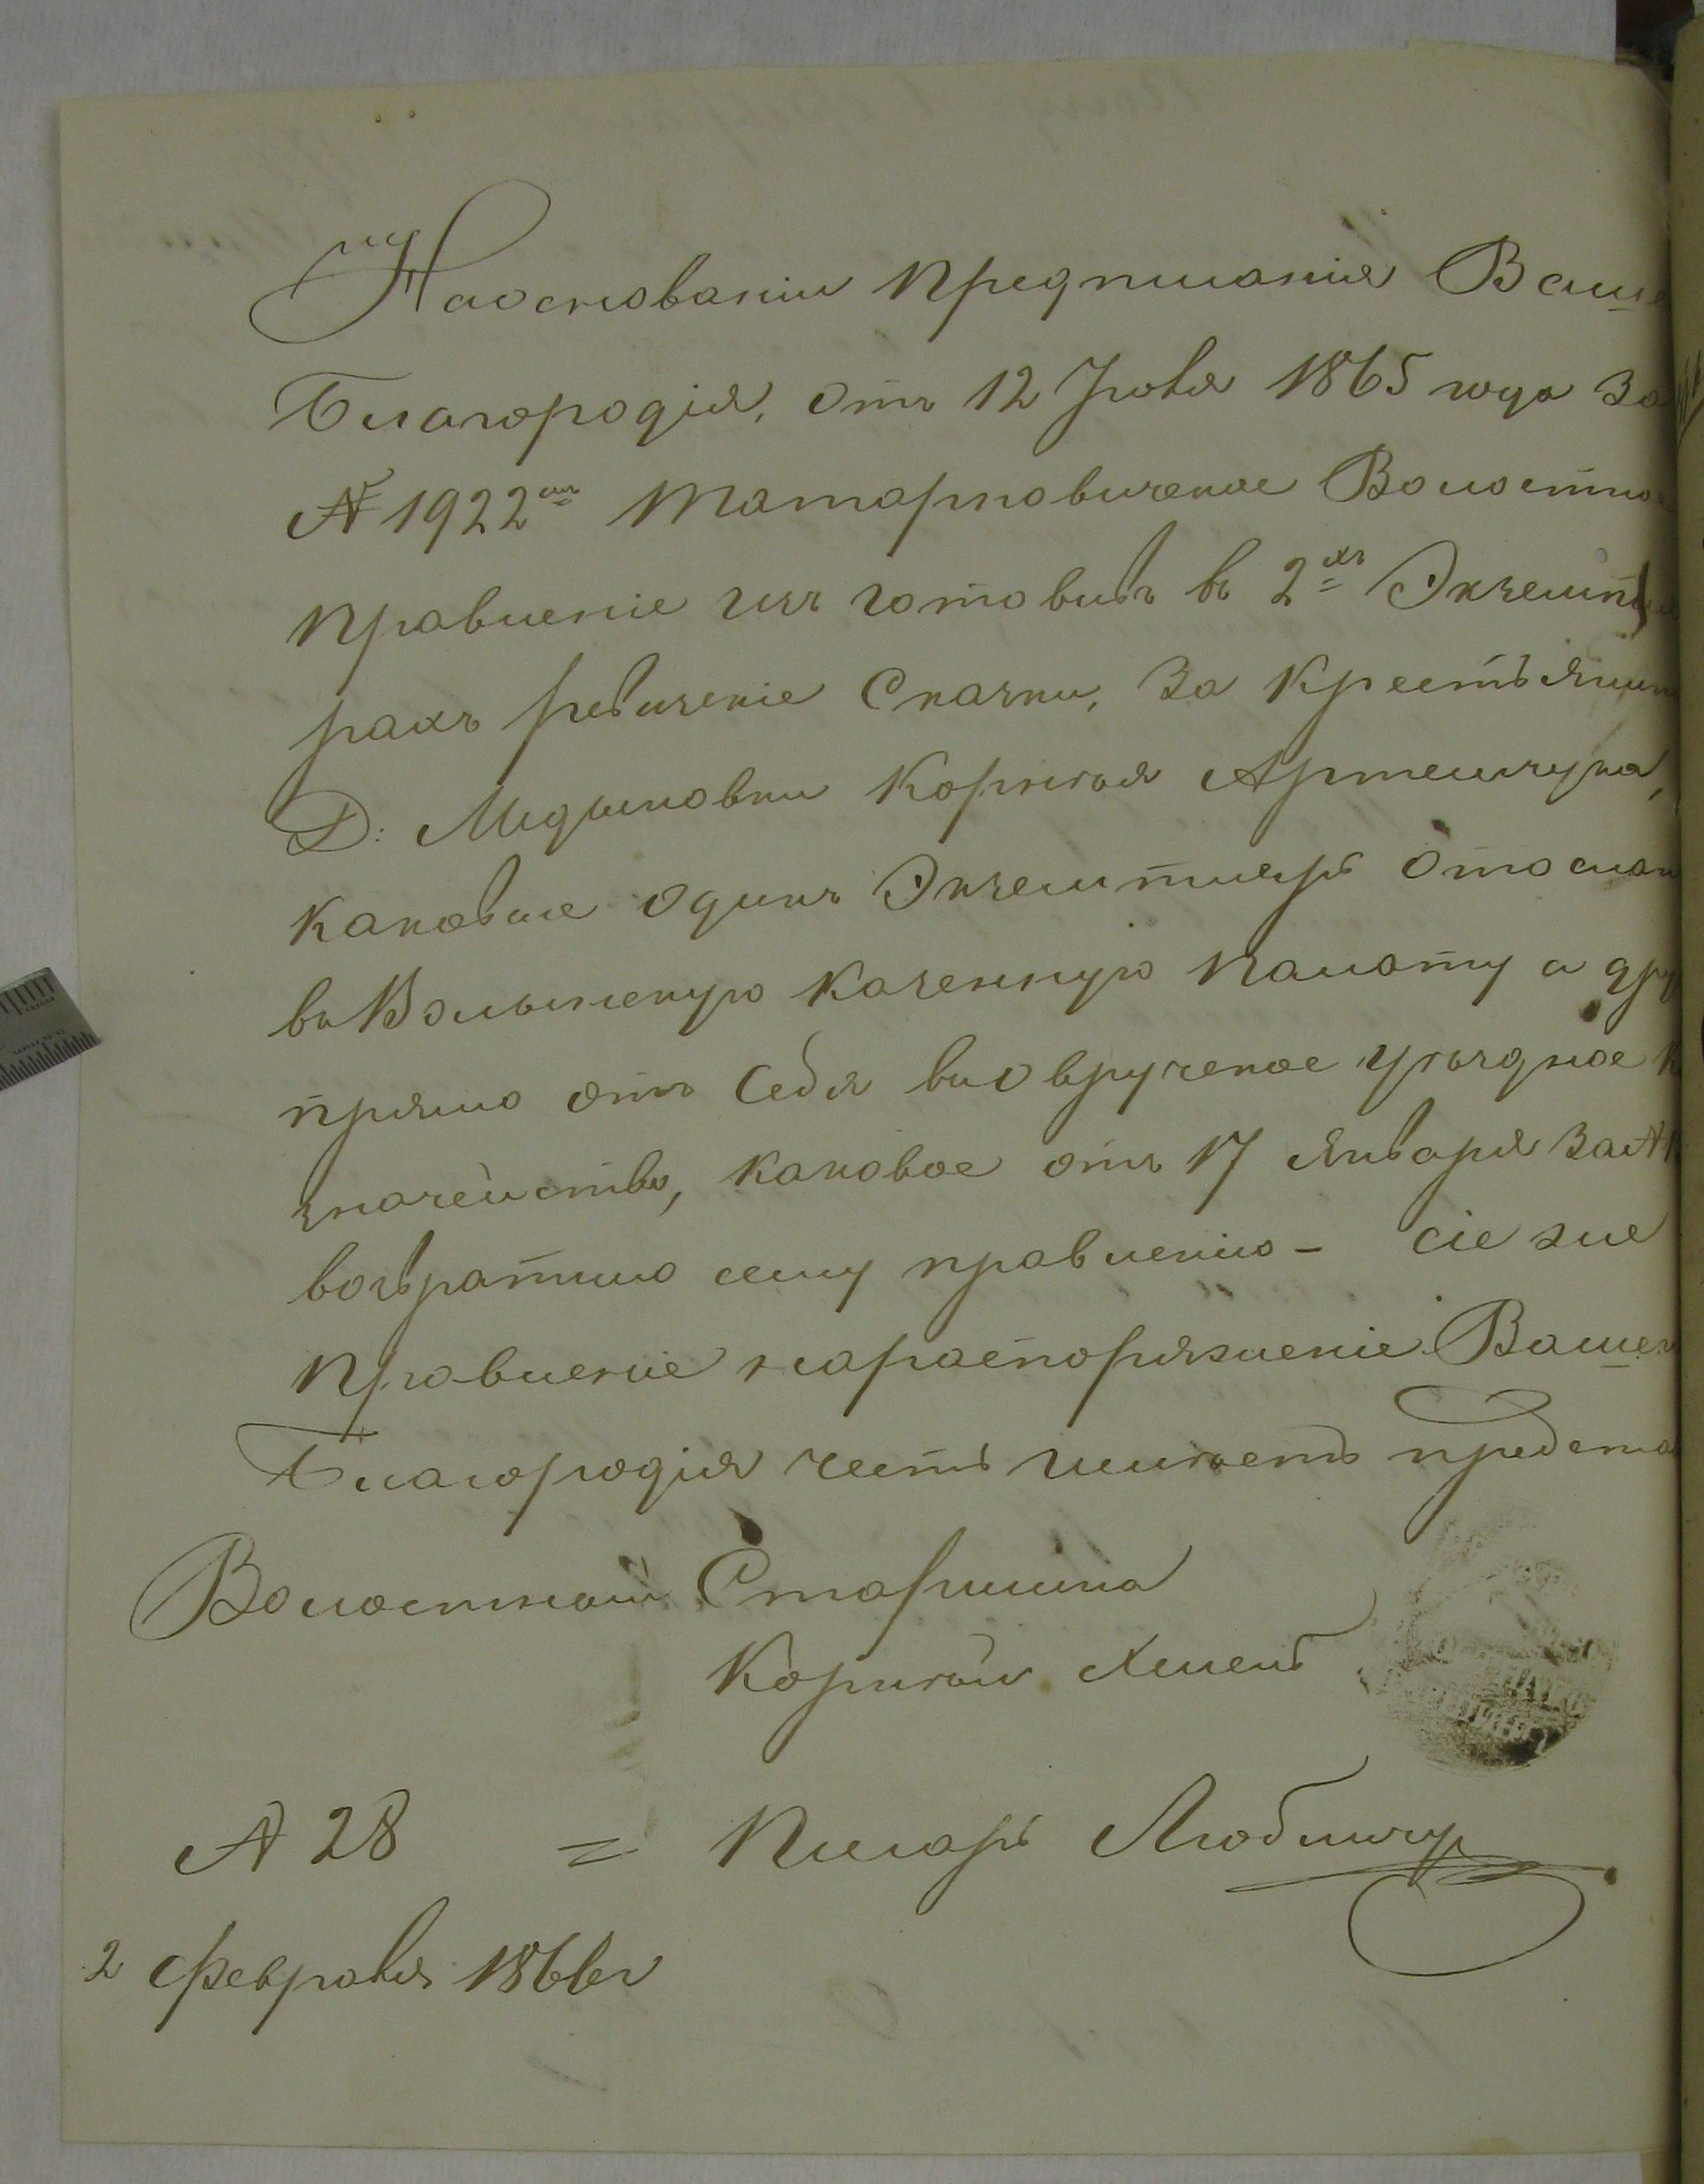 Наоснованіи предписанія Ваше
Благородія, отъ 12 Іюля 1865 года за
№ 1922мъ Татарновичское Волостно
правленіе изъ готовивъ въ 2хъ Экземпля
рахъ ревизскіе Сказки, за Крестьянин
Д: Медыновки Корнѣя Артемчука,
каковые одинъ Экземпляръ отослан
въ Волынскую Казенную Палату а дру
прямо отъ себя во Овручское уѣздное К
значейство, каковое отъ 17 Января за №
возвратило сему правленію – сіе же
Правленіе нараспоряженіе Ваше
Благородія честь имѣетъ предста
Волостной Старшина
Корнѣй Хмель
№ 28 = Писарь
2 Февраля 1866 г